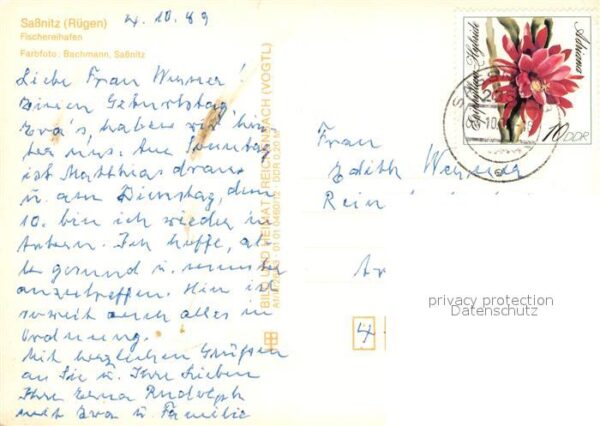 4.10.89
Saßnitz (Rügen)
Fischereihafen
Farbfoto: Bachmann, Saßnitz
Liebe Frau Werner!
Einen Geburtstag,
Eva's, haben wir hin
ter uns. Am Sonntag
ist Matthias dran
u. am Dienstag, dem
10. bin ich wieder in
Ich hoffe, al
le gesund u. munter
anzutreffen. Hier ist
soweit auch alles in
Ordnung.
Mit herzlichen Grüßen
an Sie u. Ihre Lieben
Ihre Erna Rudolph
mit Eva u. Familie
BILD UND HEIMAT REICHENBACH (VOGTL)
01 01 0460/12 · DDR 0,20 M
Epiphyllum-Hybride
Adriana
10 DDR
Frau
Edith Werner
Rein
4
privacy protection
Datenschutz